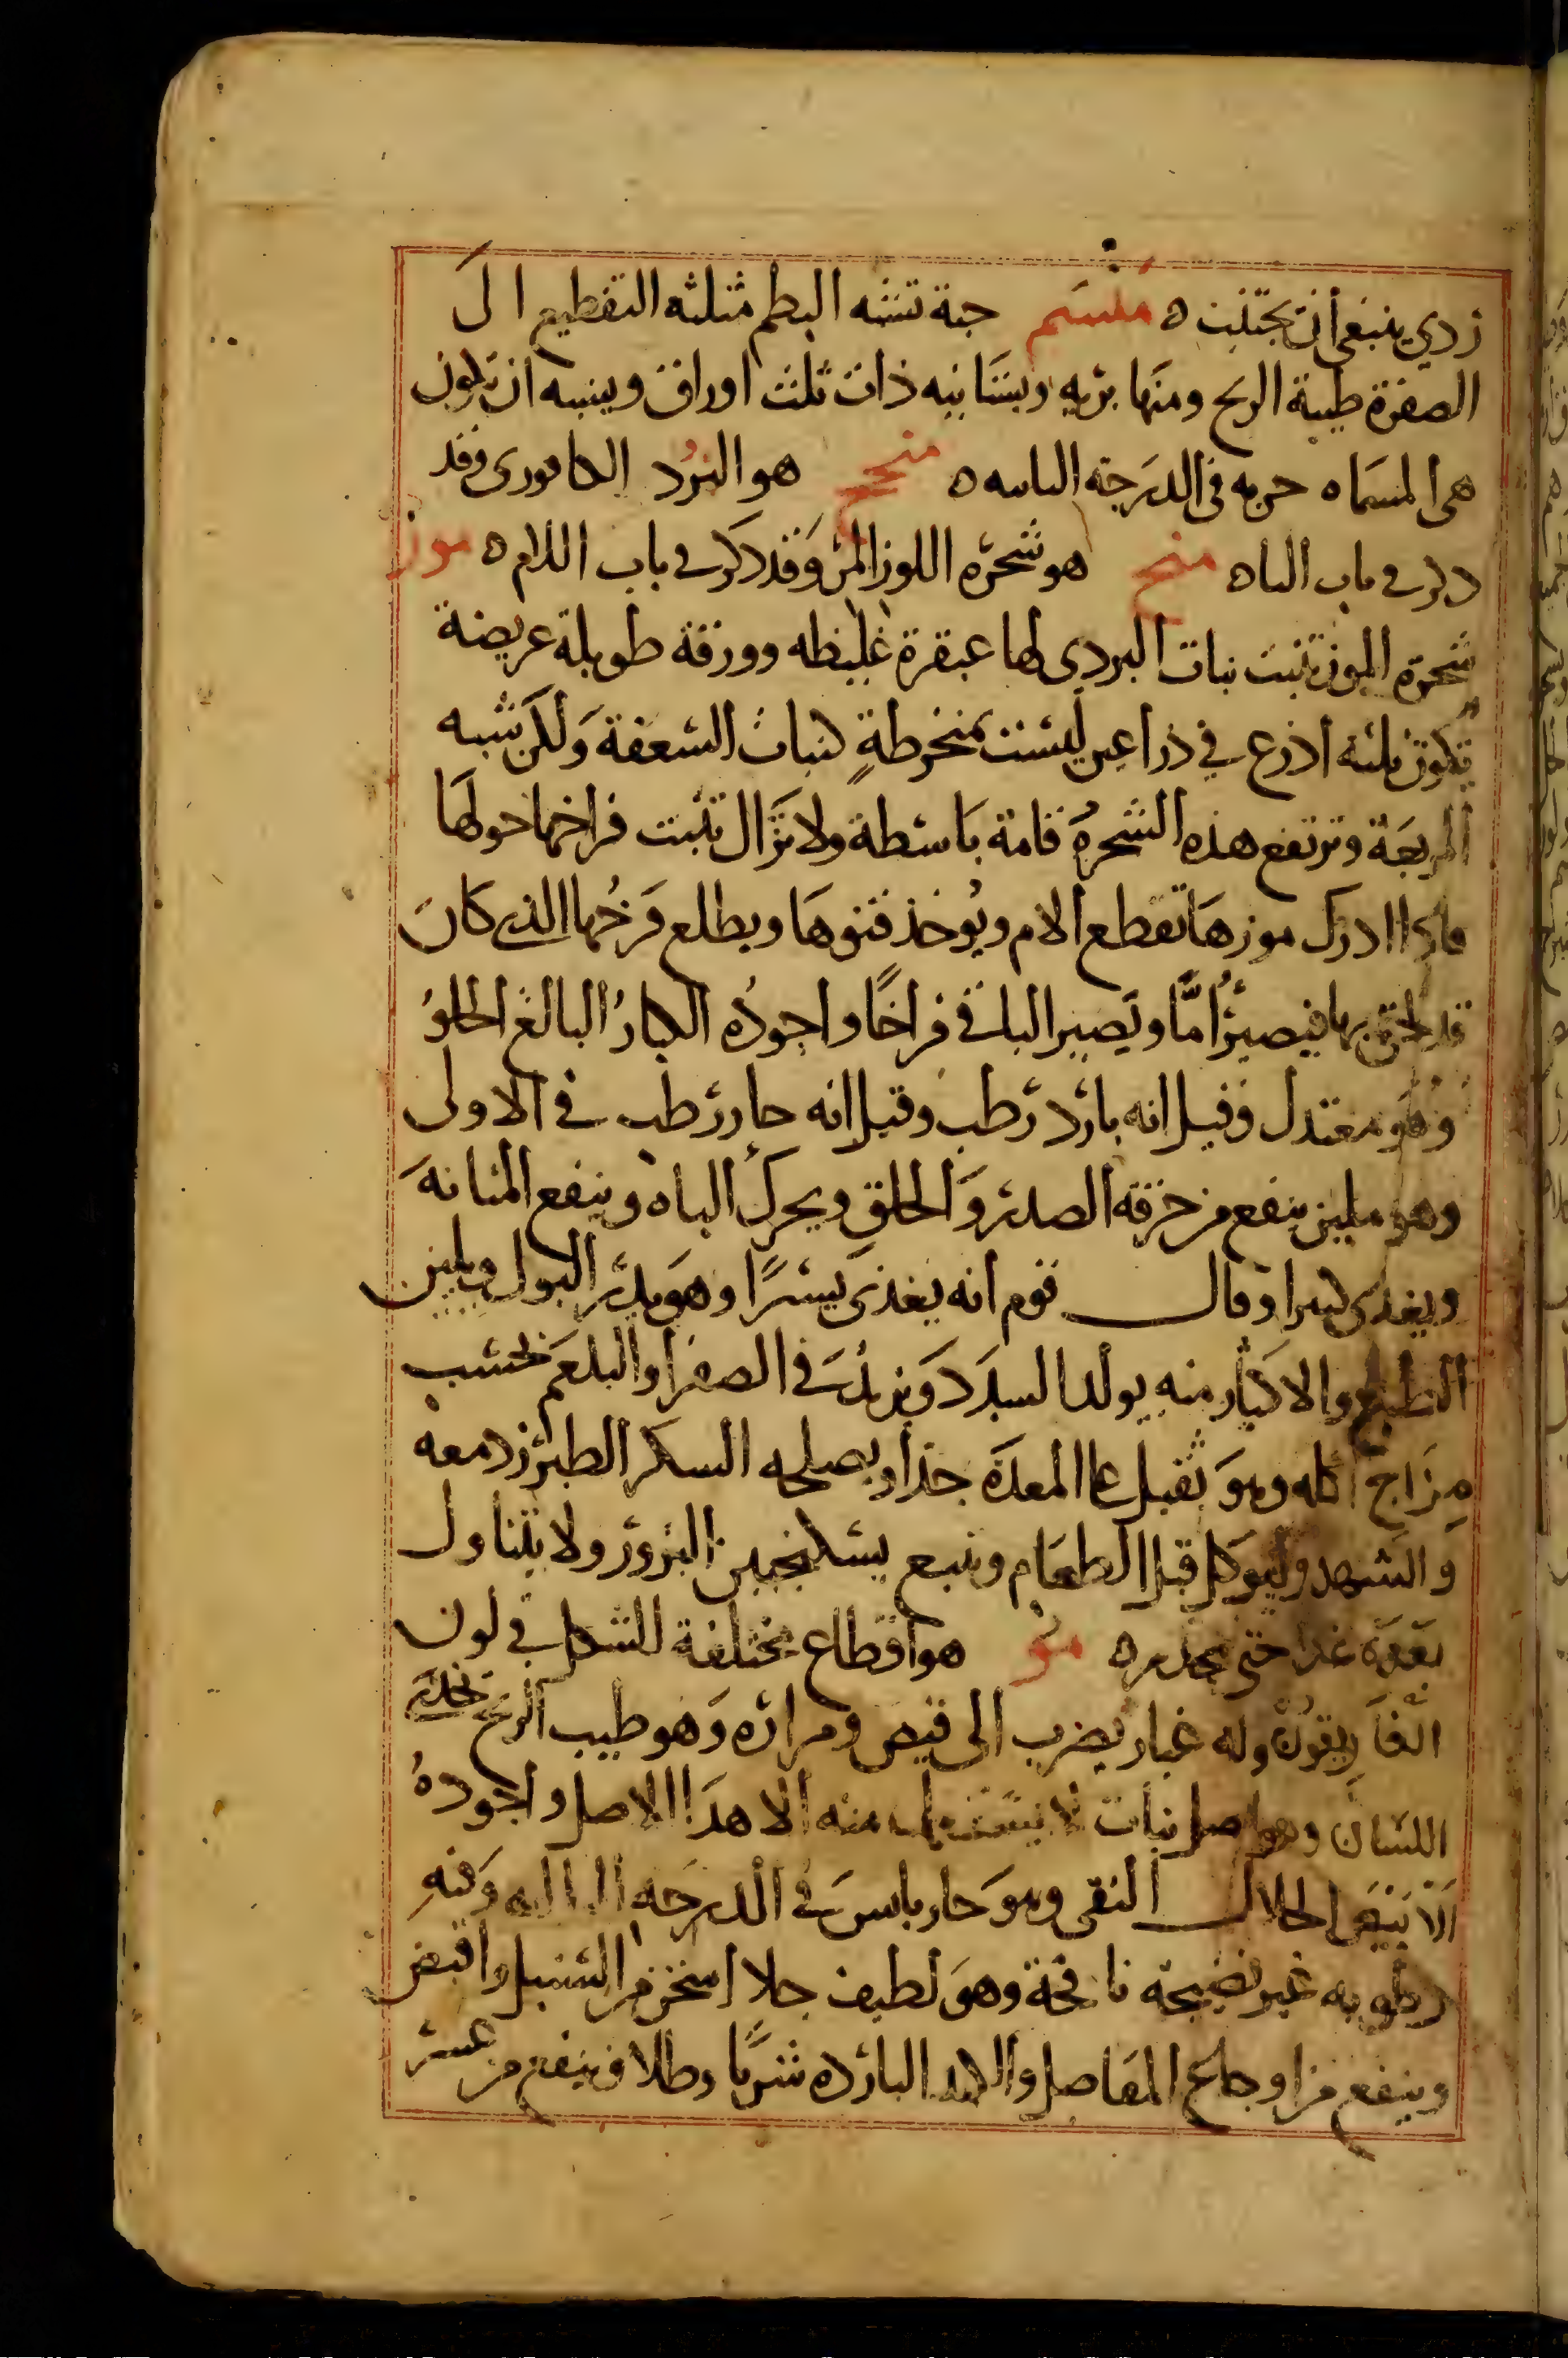 ردي ينبغي أن يجتنب ه منشم حبة تشبه البطم مثلثه التقطيع الى
الصفرة طيبة الريح ومنها بريه وبستانيه ذات ثلث اوراق ويشبه ان تكون
هي المسماه حربه في الدرجة الثانيه ه هو البرد الكافورى وقد
ذكر في باب الباه منج هو شجرة اللوز المر وقد ذكر في باب اللام ه موز
شجرة الموز تنبت نبات البردي لها عنقرة غليظه وورقة طويلة عريضة
تكون ثلثه اذرع في ذراعين ليست بمنخرطةٍ كنبات السعفة ولكن شبه
المربعة وترتفع هذه الشجرة قامة باسطة ولا تزال تنبت فراخها حولها
فاذا ادرك موزها تقطع الام ويوخذ قنوها ويطلع فرخها الذى كان
قد لحق بها فيصير أمّا ويصير الباقي فراخًا واجوده الكبارُ البالغ الحلوُ
وهو معتدل وقيل انه بارد رطب وقيل انه حار رطب في الاولى
وهو ملين ينفع من حرقة الصدر والحلق ويحرك الباه وينفع المثانة
ويغذى كثيرا وقال قوم انه يغذى يسيرًا وهو يدر البول ويلين
الطبع والاكثار منه يولد السدد ويزيد في الصفرا والبلغم بحسب
مزاج اكله وهو ثقيل على المعدة جدا ويصلحه السكر الطبرزد معه
والشهد وليوكل قبل الطعام ويتبع بسكنجبين البزور ولا يتناول
بعده غدا حتى ينحدر ه مو هو اقطاع مختلفة الشكل في لون
الغاريقون وله غبار يضرب الى قبض ومراره وهو طيب الريح يحذى
اللسان وهو اصل نبات لا يستعمل منه الا هذا الاصل واجودهُ
الابيض الحلال النقي وهو حار يابس في الدرجه الثالثه وفيه
رطوبه غير نضيجة نافخة وهو لطيف جلا اسخن من السنبل واقبض
وينفع من اوجاع المفاصل البارده شربًا وطلا وينفع من عسر